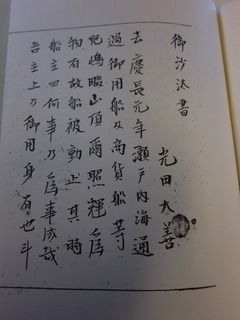 御沙汰書
光田大善
去慶長元年瀬戸内海通
過御用船及商貨船等
児嶋暇山頂爾照輝為
物有故船被動止其時
船主曰何事乃為事成哉
吾主上乃御用身有也斗